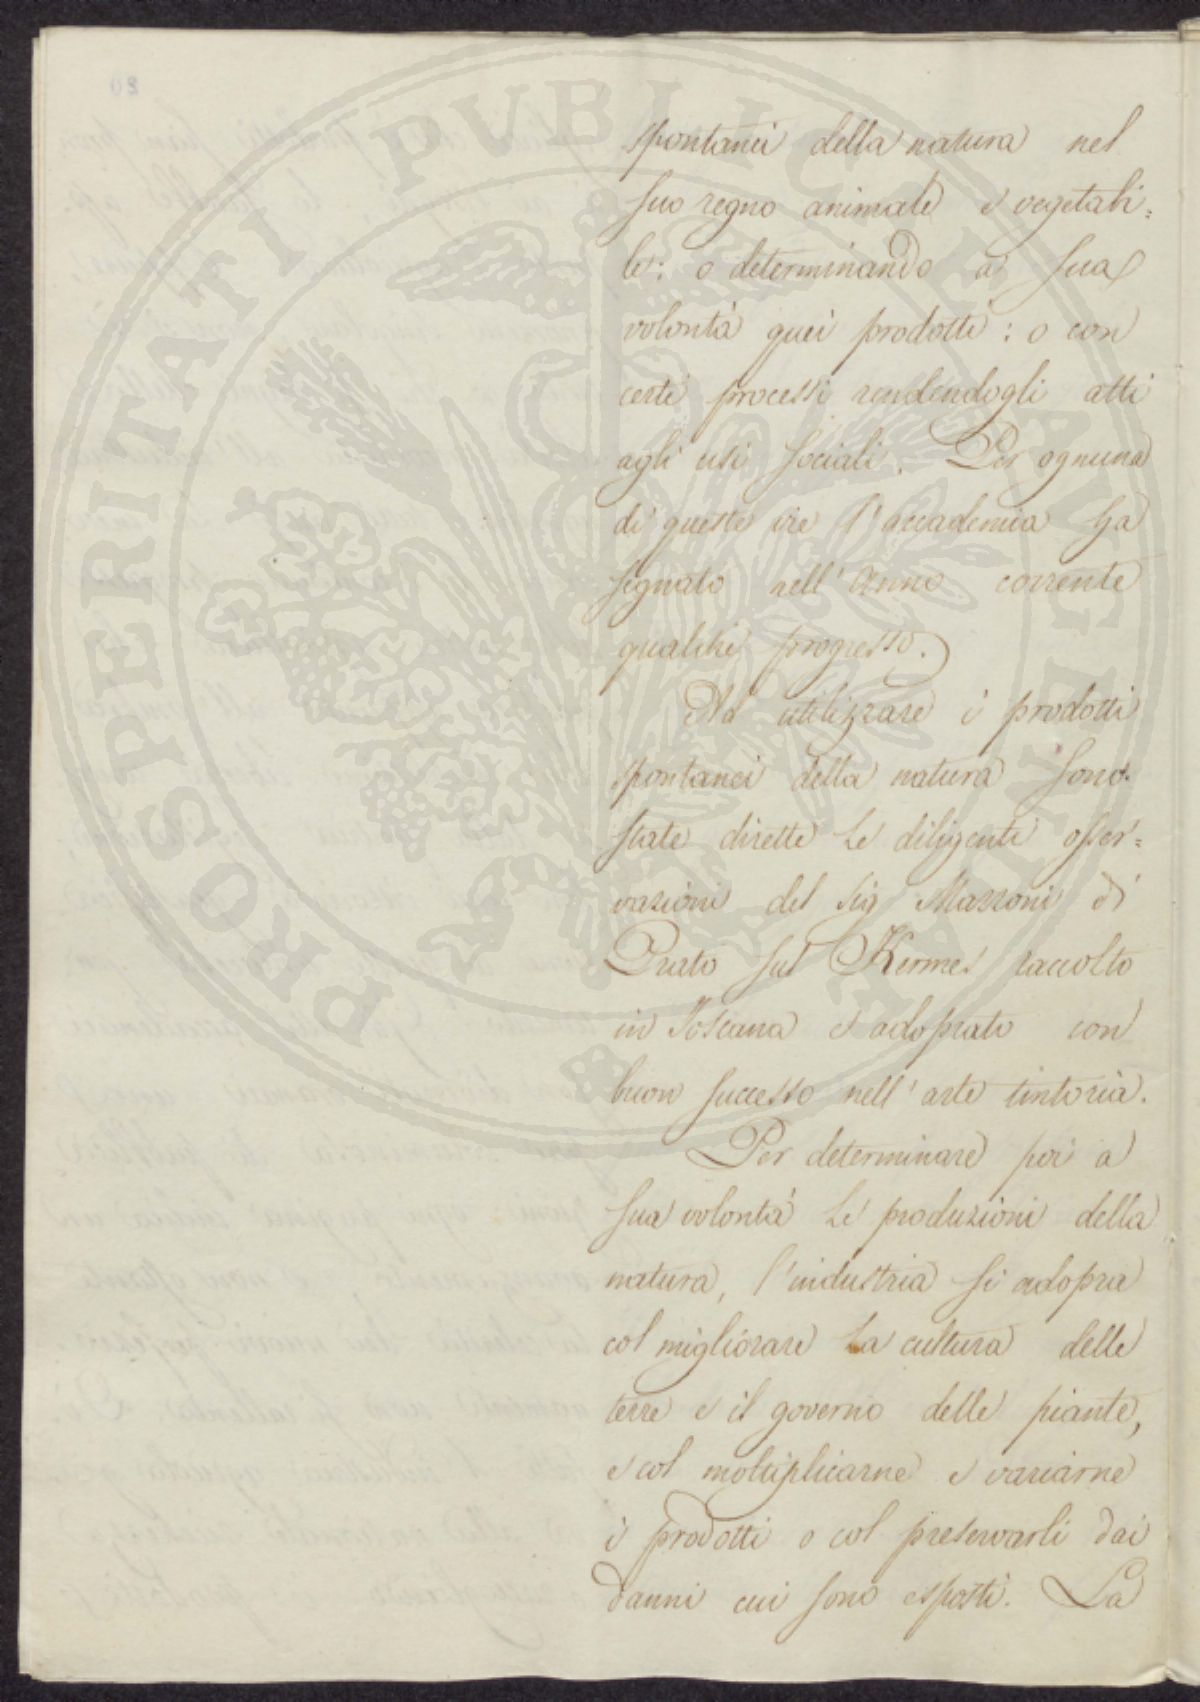 PROSPERITATI PUBLICAE AUGENDAE
spontanei della natura nel
suo regno animale e vegetabi=
le: o determinando a sua
volontà quei prodotti: o con
certi processi rendendogli atti
agli usi sociali. Per ognuna
di queste vie l'accademia ha
segnato nell'Anno corrente
qualche progresso.
Ad utilizzare i prodotti
spontanei della natura sono
state dirette le diligenti osser=
vazioni del Sig Mazzoni di
Prato sul Kermes raccolto
in Toscana e adoprato con
buon successo nell'arte tintoria.
Per determinare poi a
sua volontà le produzioni della
natura, l'industria si adopra
col migliorare la cultura delle
terre e il governo delle piante,
e col moltiplicarne e variarne
i prodotti o col preservarli dai
danni cui sono esposti. La